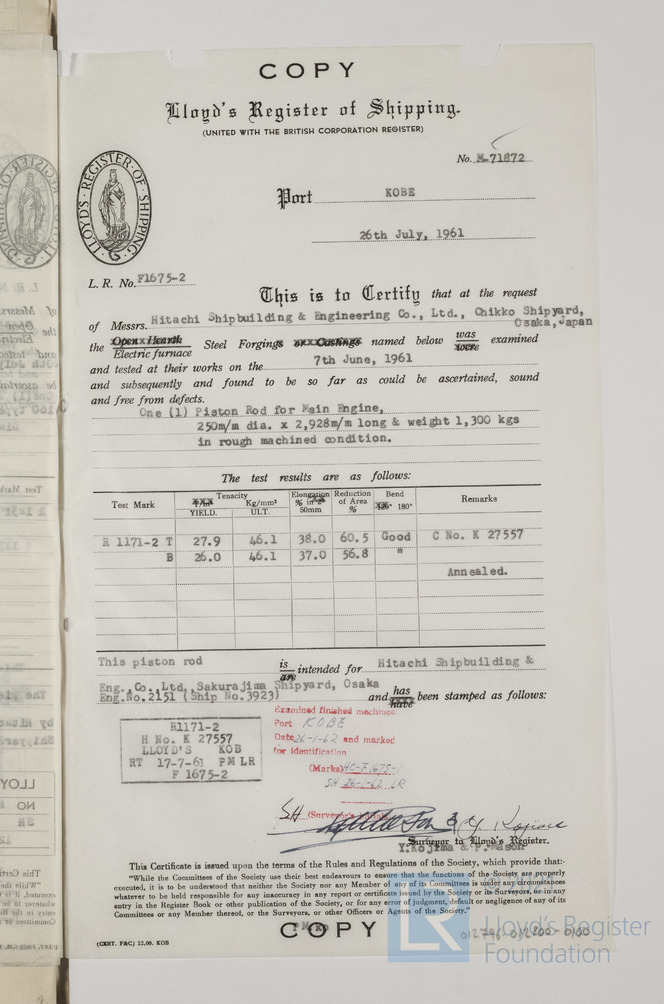 COPY
Lloyd's Register of Shipping.
(UNITED WITH THE BRITISH CORPORATION REGISTER)
No. M-71872
LLOYD'S · REGISTER · OF · SHIPPING
Port KOBE
26th July, 1961
L. R. No. F1675-2
This is to Certify that at the request
of Messrs. Hitachi Shipbuilding & Engineering Co., Ltd., Chikko Shipyard,
Osaka, Japan
the Open Hearth Steel Forgings or Castings named below was were examined
Electric furnace
and tested at their works on the 7th June, 1961
and subsequently and found to be so far as could be ascertained, sound
and free from defects.
One (1) Piston Rod for Main Engine,
250m/m dia. x 2,928m/m long & weight 1,300 kgs
in rough machined condition.
The test results are as follows:
Test Mark Tenacity Kg/mm² Elongation % in 2" 50mm Reduction of Area % Bend 180° Remarks
YIELD. ULT.
R 1171-2 T 27.9 46.1 38.0 60.5 Good C No. K 27557
B 26.0 46.1 37.0 56.8 "
Annealed.
This piston rod is are intended for Hitachi Shipbuilding &
Eng., Co., Ltd., Sakurajima Shipyard, Osaka
Eng.No.2151 (Ship No.3923) and has have been stamped as follows:
R1171-2
H No. K 27557
LLOYD'S KOB
RT 17-7-61 PM LR
F 1675-2
Examined finished machined
Port KOBE
Date 26-1-62 and marked
for identification
(Marks) HC-F1675-
SH 26-1-62 LR
SH (Surveyor's initials)
Surveyor to Lloyd's Register.
Y.Kojima & P.Mason
This Certificate is issued upon the terms of the Rules and Regulations of the Society, which provide that:-
"While the Committees of the Society use their best endeavours to ensure that the functions of the Society are properly
executed, it is to be understood that neither the Society nor any Member of any of its Committees is under any circumstances
whatever to be held responsible for any inaccuracy in any report or certificate issued by the Society or its Surveyors, or in any
entry in the Register Book or other publication of the Society, or for any error of judgment, default or negligence of any of its
Committees or any Member thereof, or the Surveyors, or other Officers or Agents of the Society."
COPY
(CERT. F&C) 12.60. KOB
012796-012800-0100
LR
Property of
Lloyd's Register
Foundation